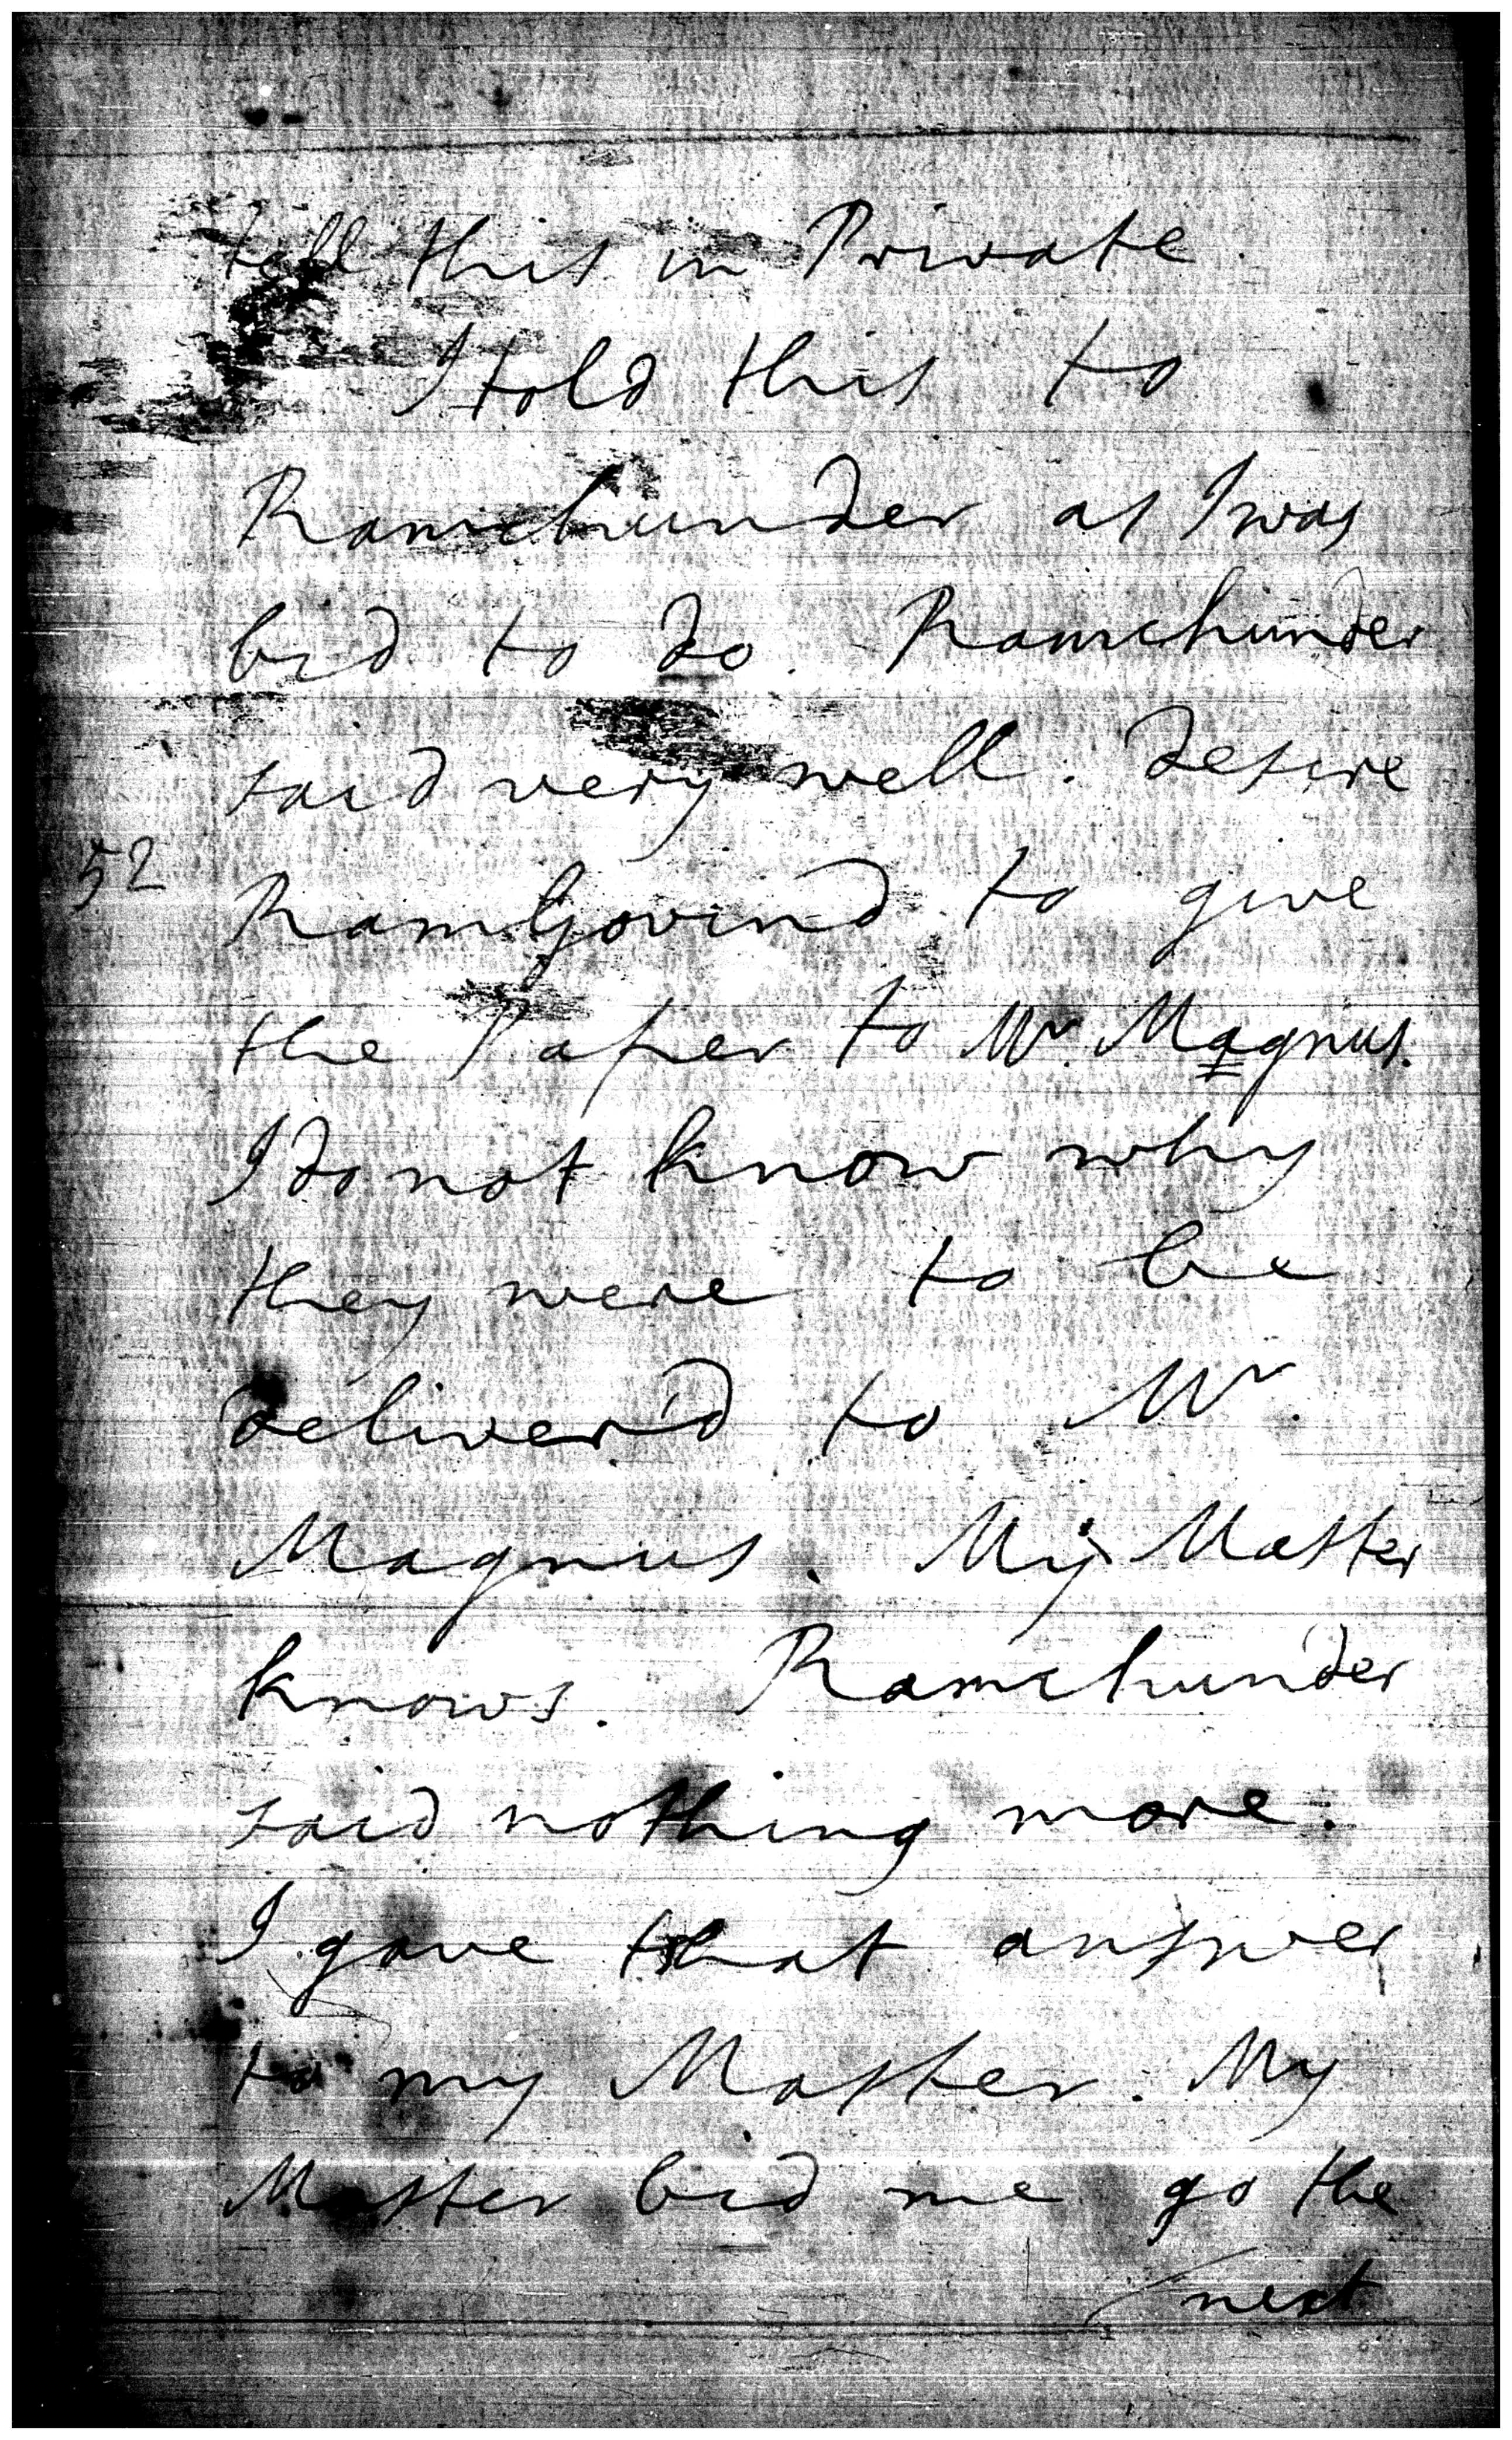 tell this in Private.
I told this to
Ramchunder as I was
bid to do. Ramchunder
said very well. Desire
52
RamGovind to give
the Paper to Mr. Magnus.
I do not know why
they were to be
deliver'd to Mr.
Magnus. My Master
knows. Ramchunder
said nothing more.
I gave that answer
to my Master. My
Master bid me go the
next